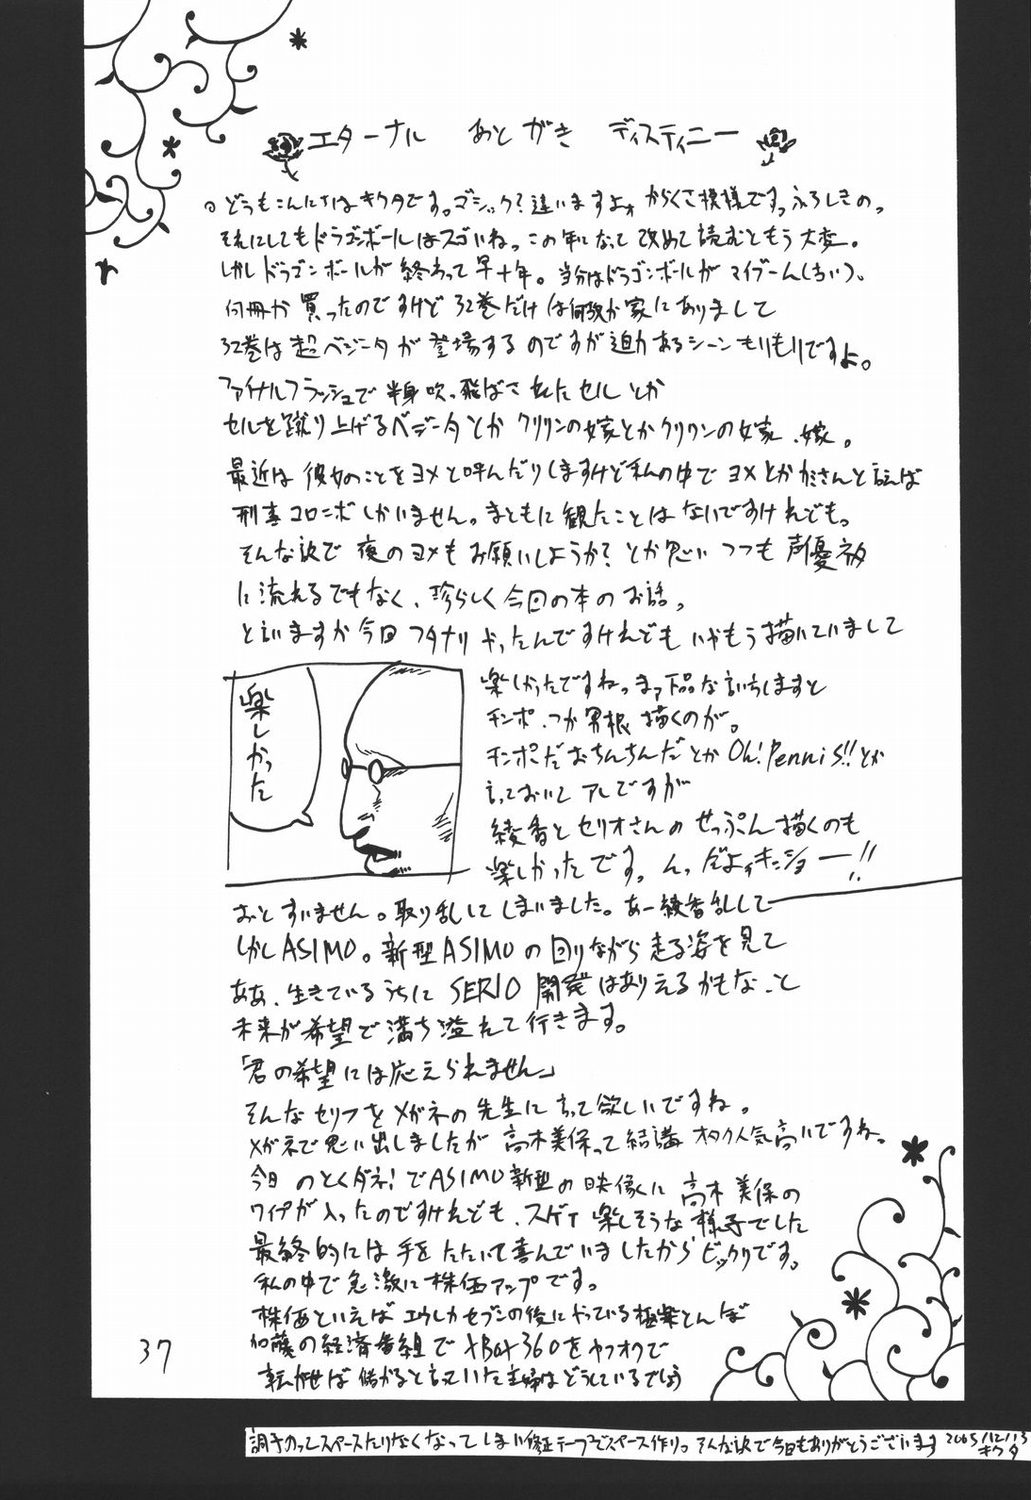 エターナル あとがき ディスティニー
どうもこんにちはキクタです。ゴシック？違いますよォ からくさ模様ですっふろしきのっ
それにしてもドラゴンボールはスゴいね。この年になって改めて読むともう大変。
しかしドラゴンボールが終わって早十年。当分はドラゴンボールがマイブーム(古い)。
何冊か買ったのですけど32巻だけは何故か家にありまして
32巻は超ベジータが登場するのですが迫力あるシーンもりもりですよ。
ファイナルフラッシュで半身吹っ飛ばされたセルとか
セルを蹴り上げるベジータとかクリリンの嫁とかクリリンの嫁、嫁。
最近は彼女のことをヨメと呼んだりしますけど私の中でヨメとかカミさんと言えば
刑事コロンボしかいません。まともに観たことはないですけれども。
そんな訳で夜のヨメもお願いしようか？とか思いつつも声優ネタ
に流れるでもなく、珍らしく今回の本のお話。
と言いますか今回フタナリやったんですけれどもいやもう描いていまして
楽しかった
楽しかったですねっまァ下品な言いちしますと
チンポ、つか男根描くのが。
チンポだおちんちんだとかOh! Pennis!!とか
言っておいてアレですが
綾香とセリオさんのせっぷん描くのも
楽しかったです。んっだよォキンショー!!
おとすいません。取り乱してしまいました。あー綾香乱して
しかしASIMO。新型ASIMOの回りながら走る姿を見て
ああ、生きているうちにSERIO開発はありえるかもなっと
未来が希望で満ち溢れて行きます。
「君の希望には応えられません」
そんなセリフをメガネの先生に言って欲しいですね。
メガネで思い出しましたが高木美保って結構オタク人気高いですね。
今日のとくダネ!でASIMO新型の映像に高木美保の
ワイプが入ったのですけれども、スゲェ楽しそうな様子でした
最終的には手をたたいて喜んでいましたからビックリです。
私の中で急激に株価アップです。
株価といえばエウレカセブンの後にやっている極楽とんぼ
加藤の経済番組でXBOX360をヤフオクで
転がせば儲かると言っていた主婦はどうしているでしょう
37
調子のってスペースたりなくなってしまい修正テープでスペース作りっ そんな訳で今日もありがとうございます 2005/12/13
キクタ